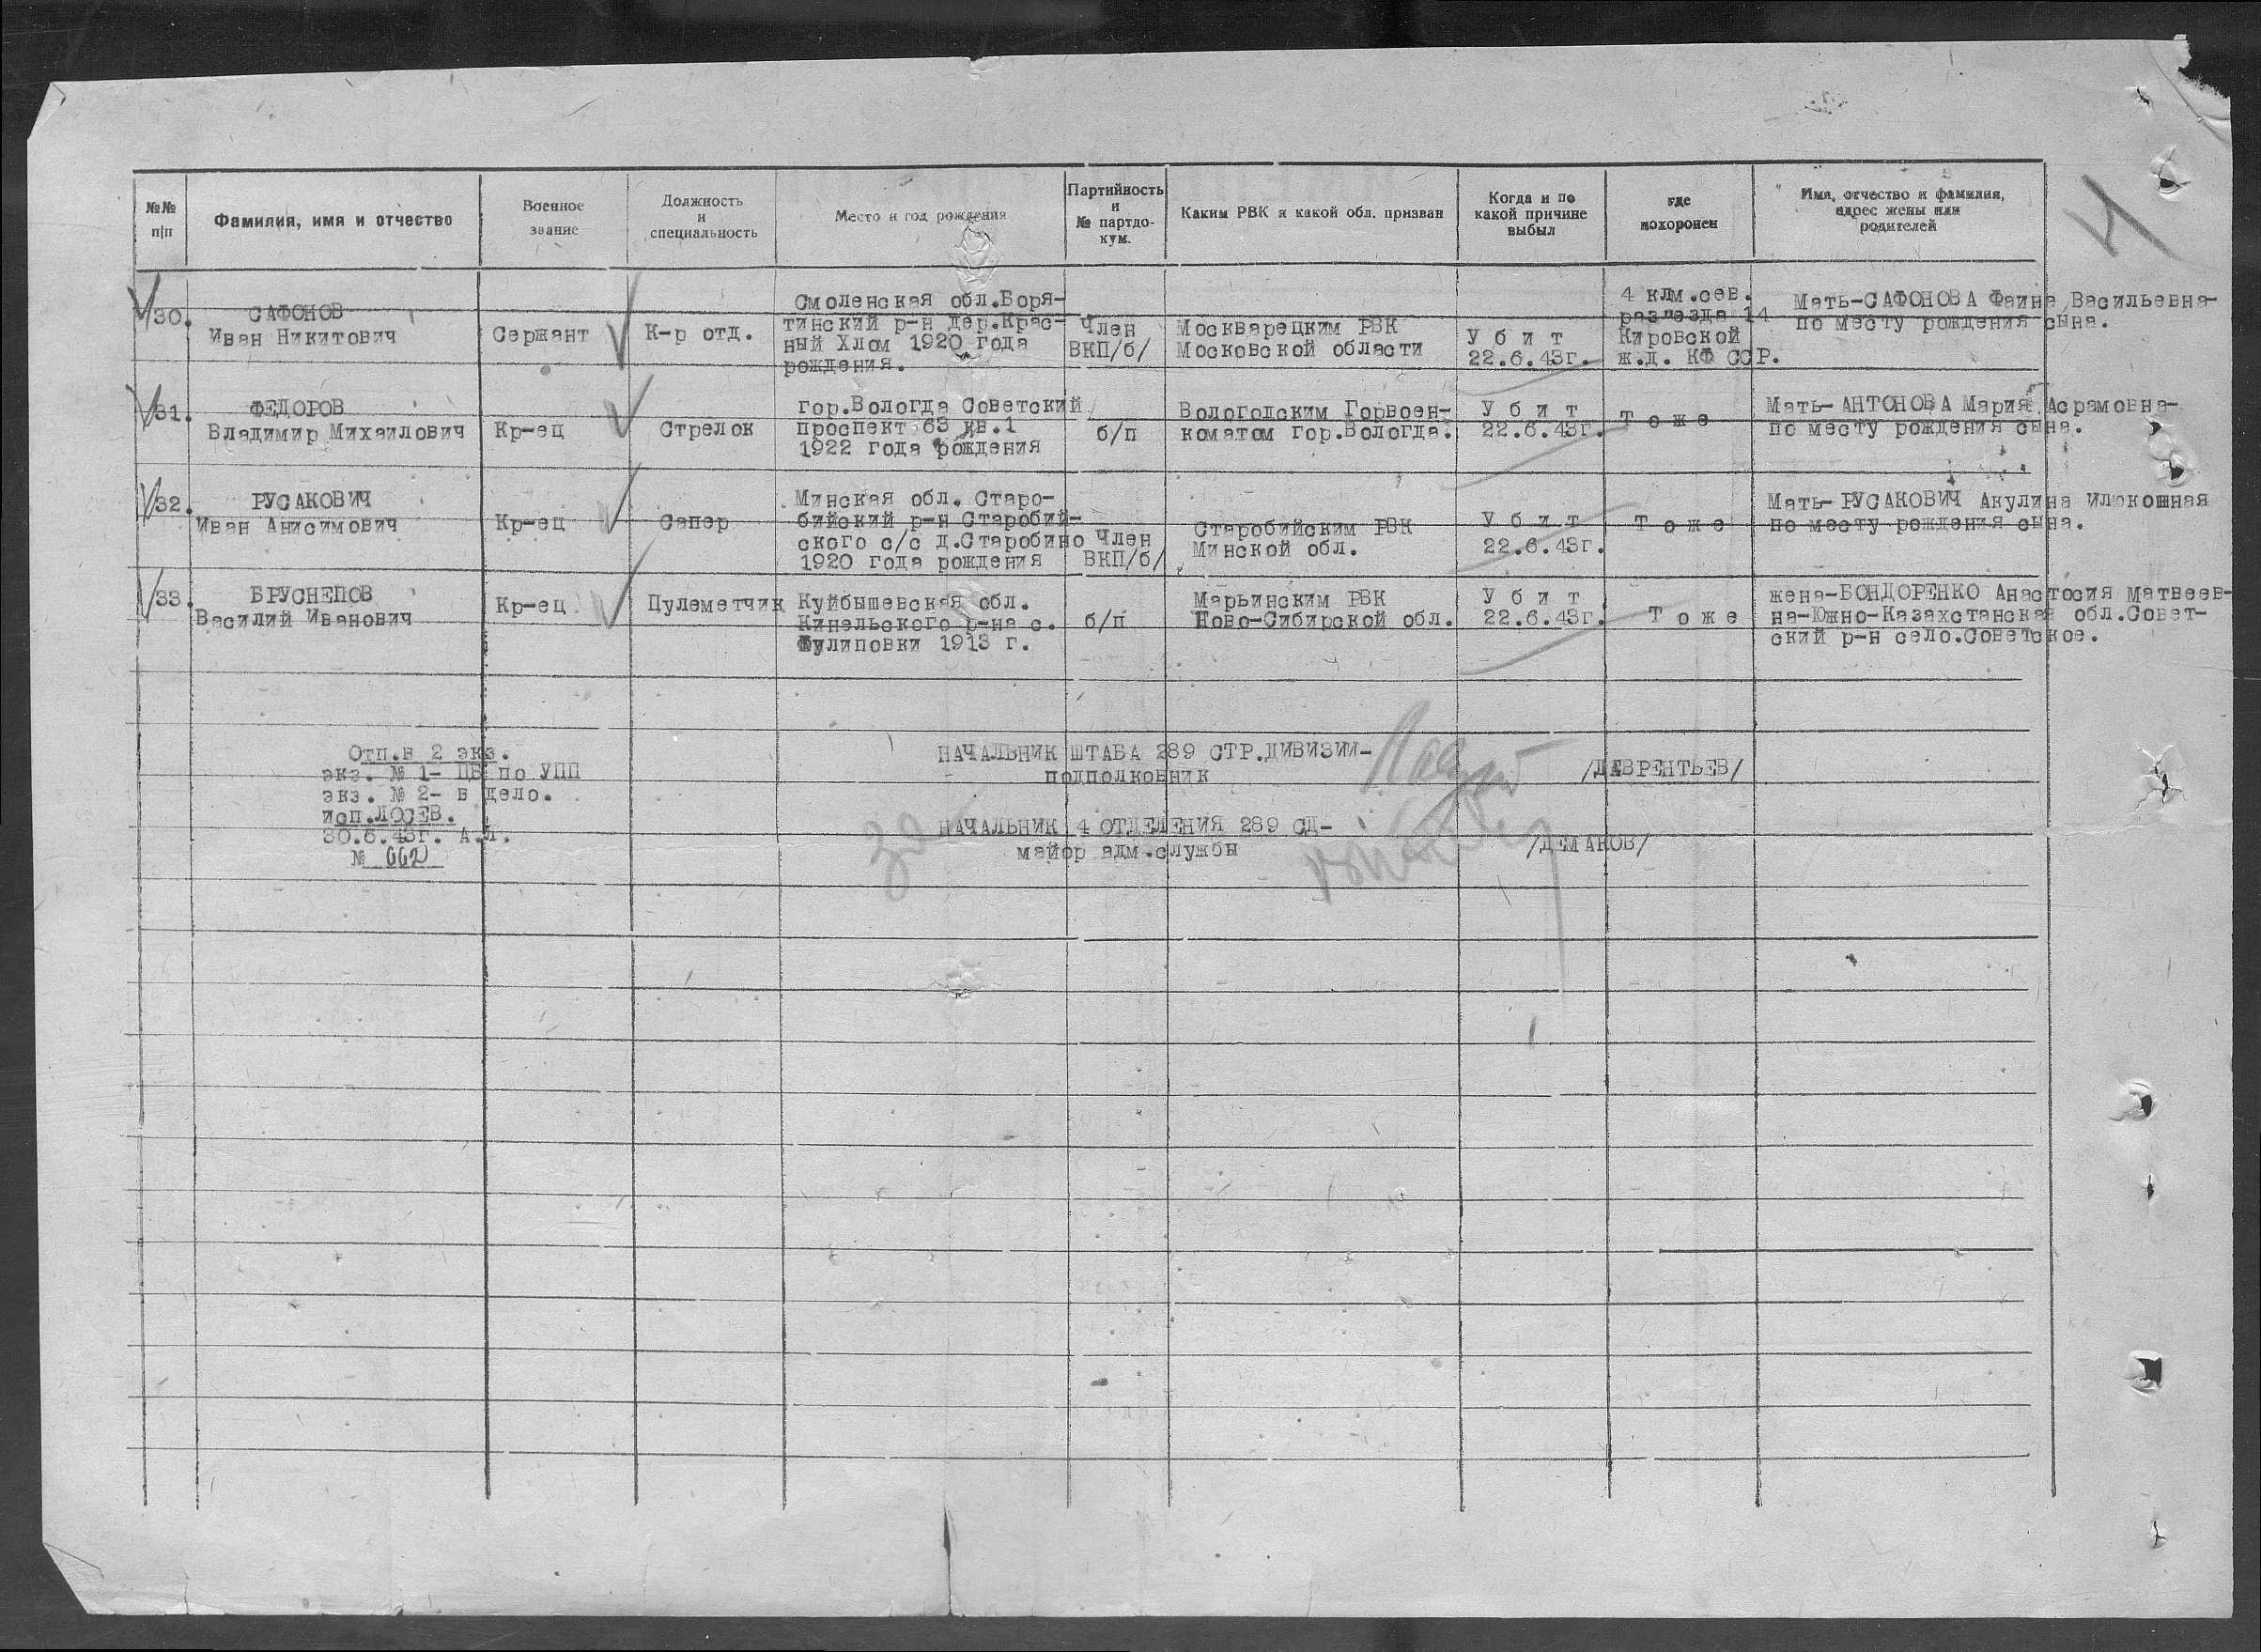 №№ п|п
Фамилия, имя и отчество
Военное звание
Должность и специальность
Место и год рождения
Партийность и № партдо- кум.
Каким РВК и какой обл. призван
Когда и по какой причине выбыл
где похоронен
Имя, отчество и фамилия, адрес жены или родителей
4
30.
САФОНОВ
Иван Никитович
Сержант
К-р отд.
Смоленская обл.Боря-
тинский р-н дер.Крас-
ный Хлом 1920 года
рождения.
Член
ВКП/б/
Москварецким РВК
Московской области
У б и т
22.6.43г.
4 клм.сев.
раз'езда 14
Кировской
ж.д. КФ ССР.
Мать-САФОНОВА Фаина Васильевна-
по месту рождения сына.
31.
ФЕДОРОВ
Владимир Михаилович
Кр-ец
Стрелок
гор.Вологда Советский
проспект 63 кв.1
1922 года рождения
б/п
Вологодским Горвоен-
коматом гор.Вологда.
У б и т
22.6.43г.
Т о ж е
Мать-АНТОНОВА Мария Асрамовна-
по месту рождения сына.
32.
РУСАКОВИЧ
Иван Анисимович
Кр-ец
Сапер
Минская обл. Старо-
бийский р-н Старобий-
ского с/с д.Старобино
1920 года рождения
Член
ВКП/б/
Старобийским РВК
Минской обл.
У б и т
22.6.43г.
Т о ж е
Мать-РУСАКОВИЧ Акулина Илюкошная
по месту рождения сына.
33.
БРУСНЕПОВ
Василий Иванович
Кр-ец
Пулеметчик
Куйбышевская обл.
Кинельского р-на с.
1913 г.
б/п
Марьинским РВК
Ново-Сибирской обл.
У б и т
22.6.43г.
Т о ж е
жена-БОНДОРЕНКО Анастосия Матвеев-
на-Южно-Казахстанская обл.Совет-
ский р-н село.Советское.
Отп.в 2 экз.
экз. № 1- ЦБ по УПП
экз. № 2- в дело.
исп.ЛОСЕВ.
30.6.43г. А.Л.
№ 662
НАЧАЛЬНИК ШТАБА 289 СТР.ДИВИЗИИ-
подполковник
/ЛАВРЕНТЬЕВ/
За
НАЧАЛЬНИК 4 ОТДЕЛЕНИЯ 289 СД-
майор адм.службы
/ДЕМАКОВ/